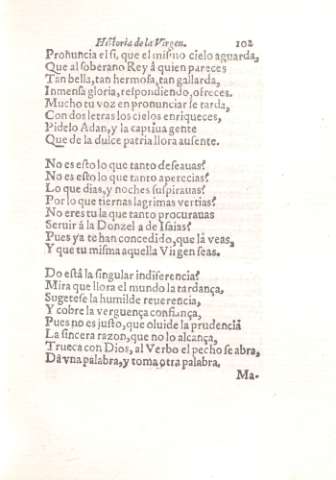 Historia de la Virgen. 102
Pronuncia el si, que el mismo cielo aguarda,
Que al soberano Rey á quien pareces
Tan bella, tan hermosa, tan gallarda,
Inmensa gloria, respondiendo, ofreces.
Mucho tu voz en pronunciar se tarda,
Con dos letras los cielos enriqueces,
Pidelo Adan, y la captiua gente
Que de la dulce patria llora ausente.
No es esto lo que tanto deseauas?
No es esto lo que tanto apetecias?
Lo que dias, y noches suspirauas?
Por lo que tiernas lagrimas vertias?
No eres tu la que tanto procurauas
Seruir á la Donzella de Isaias?
Pues ya te han concedido, que la veas,
Y que tu misma aquella Virgen seas.
Do está la singular indiferencia?
Mira que llora el mundo la tardança,
Sugetese la humilde reuerencia,
Y cobre la verguença confiança,
Pues no es justo, que oluide la prudencia
La sincera razon, que no lo alcança,
Trueca con Dios, al Verbo el pecho se abra,
Dá vna palabra, y toma otra palabra.
Ma-